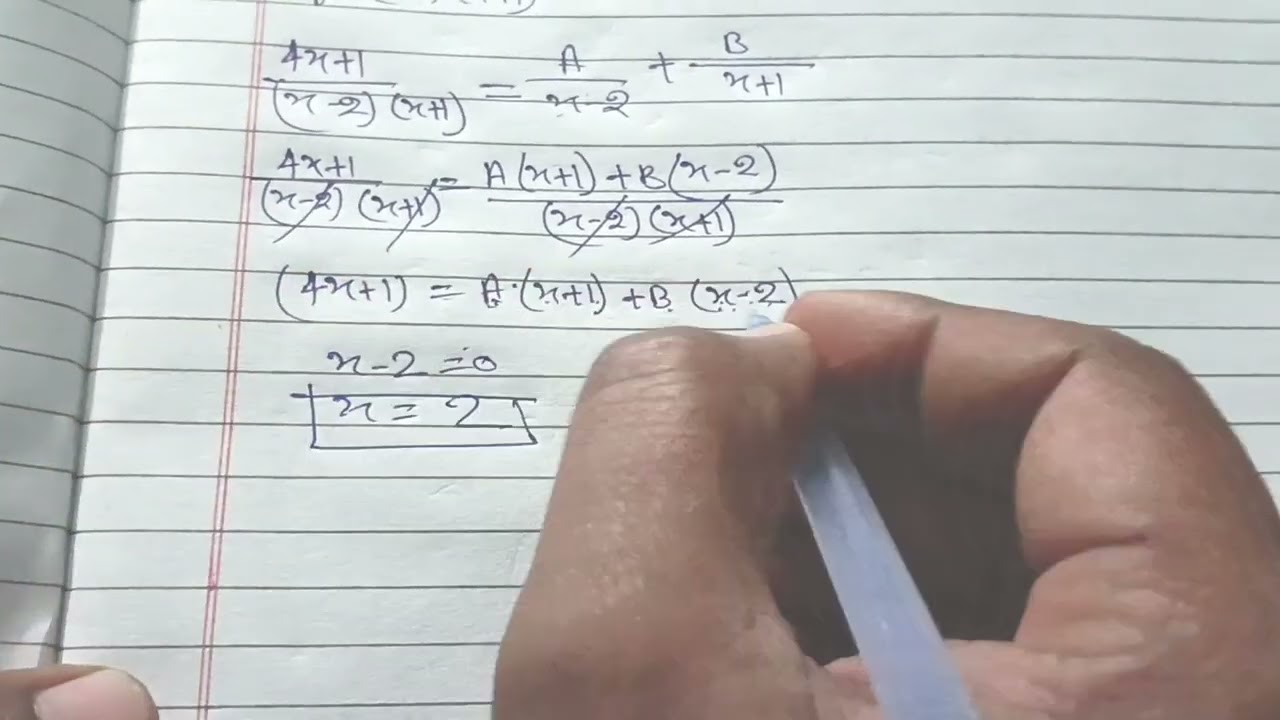 4x+1/(x-2)(x+1) = A/x-2 + B/x+1
4x+1/(x-2)(x+1) = A(x+1)+B(x-2)/(x-2)(x+1)
(4x+1) = A·(x+1)+B(x-2)
x-2=0
x=2